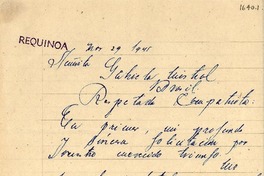 1640.1
REQUINOA
Nov 29 1945
Señorita Gabriela Mistral
Brasil
Respetada Compatriota:
En primer, mi profunda
y sincera felicitación por
Vuestro merecido triunfo